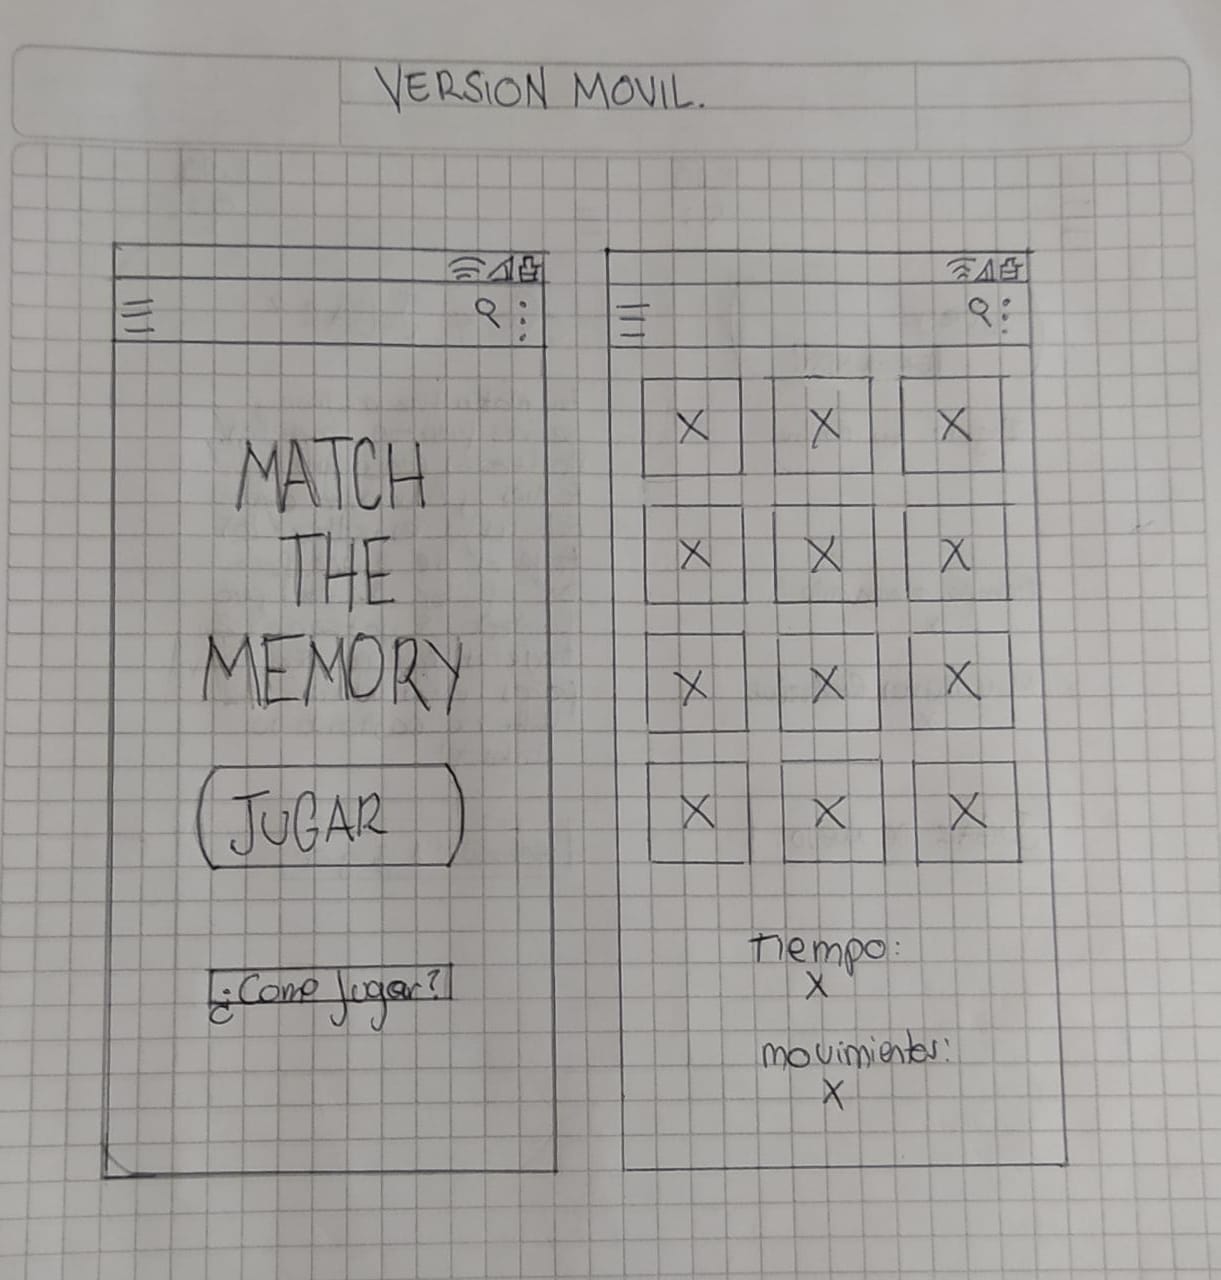 VERSION MOVIL.
MATCH
THE
MEMORY
JUGAR
¿Como Jugar?
X X X
X X X
X X X
X X X
Tiempo:
X
movimientos:
X